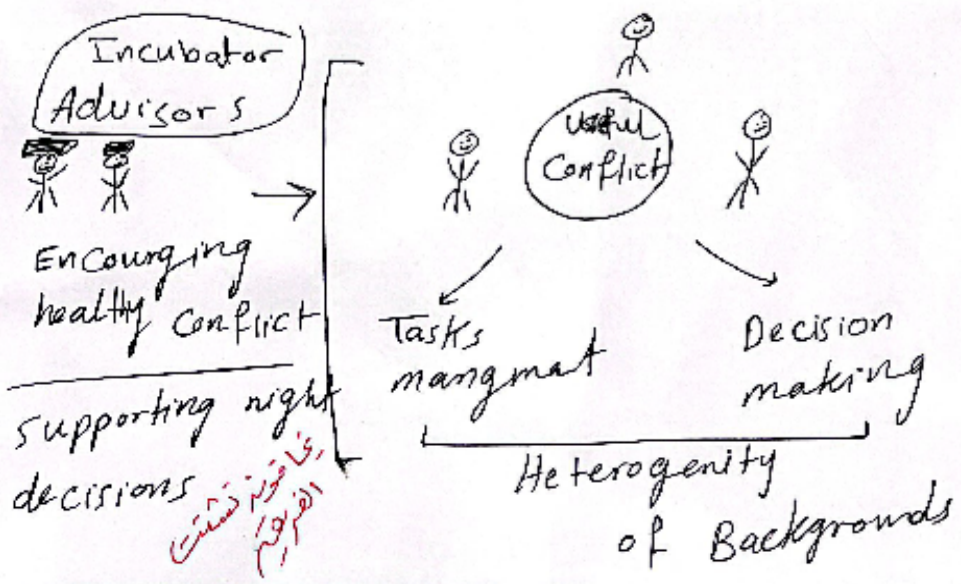 Incubator
Advisors
Encourging
healthy conflict
supporting right
decisions
الفريق
useful
Conflict
Tasks
mangmat
Decision
making
Heterogenity
of Backgrounds